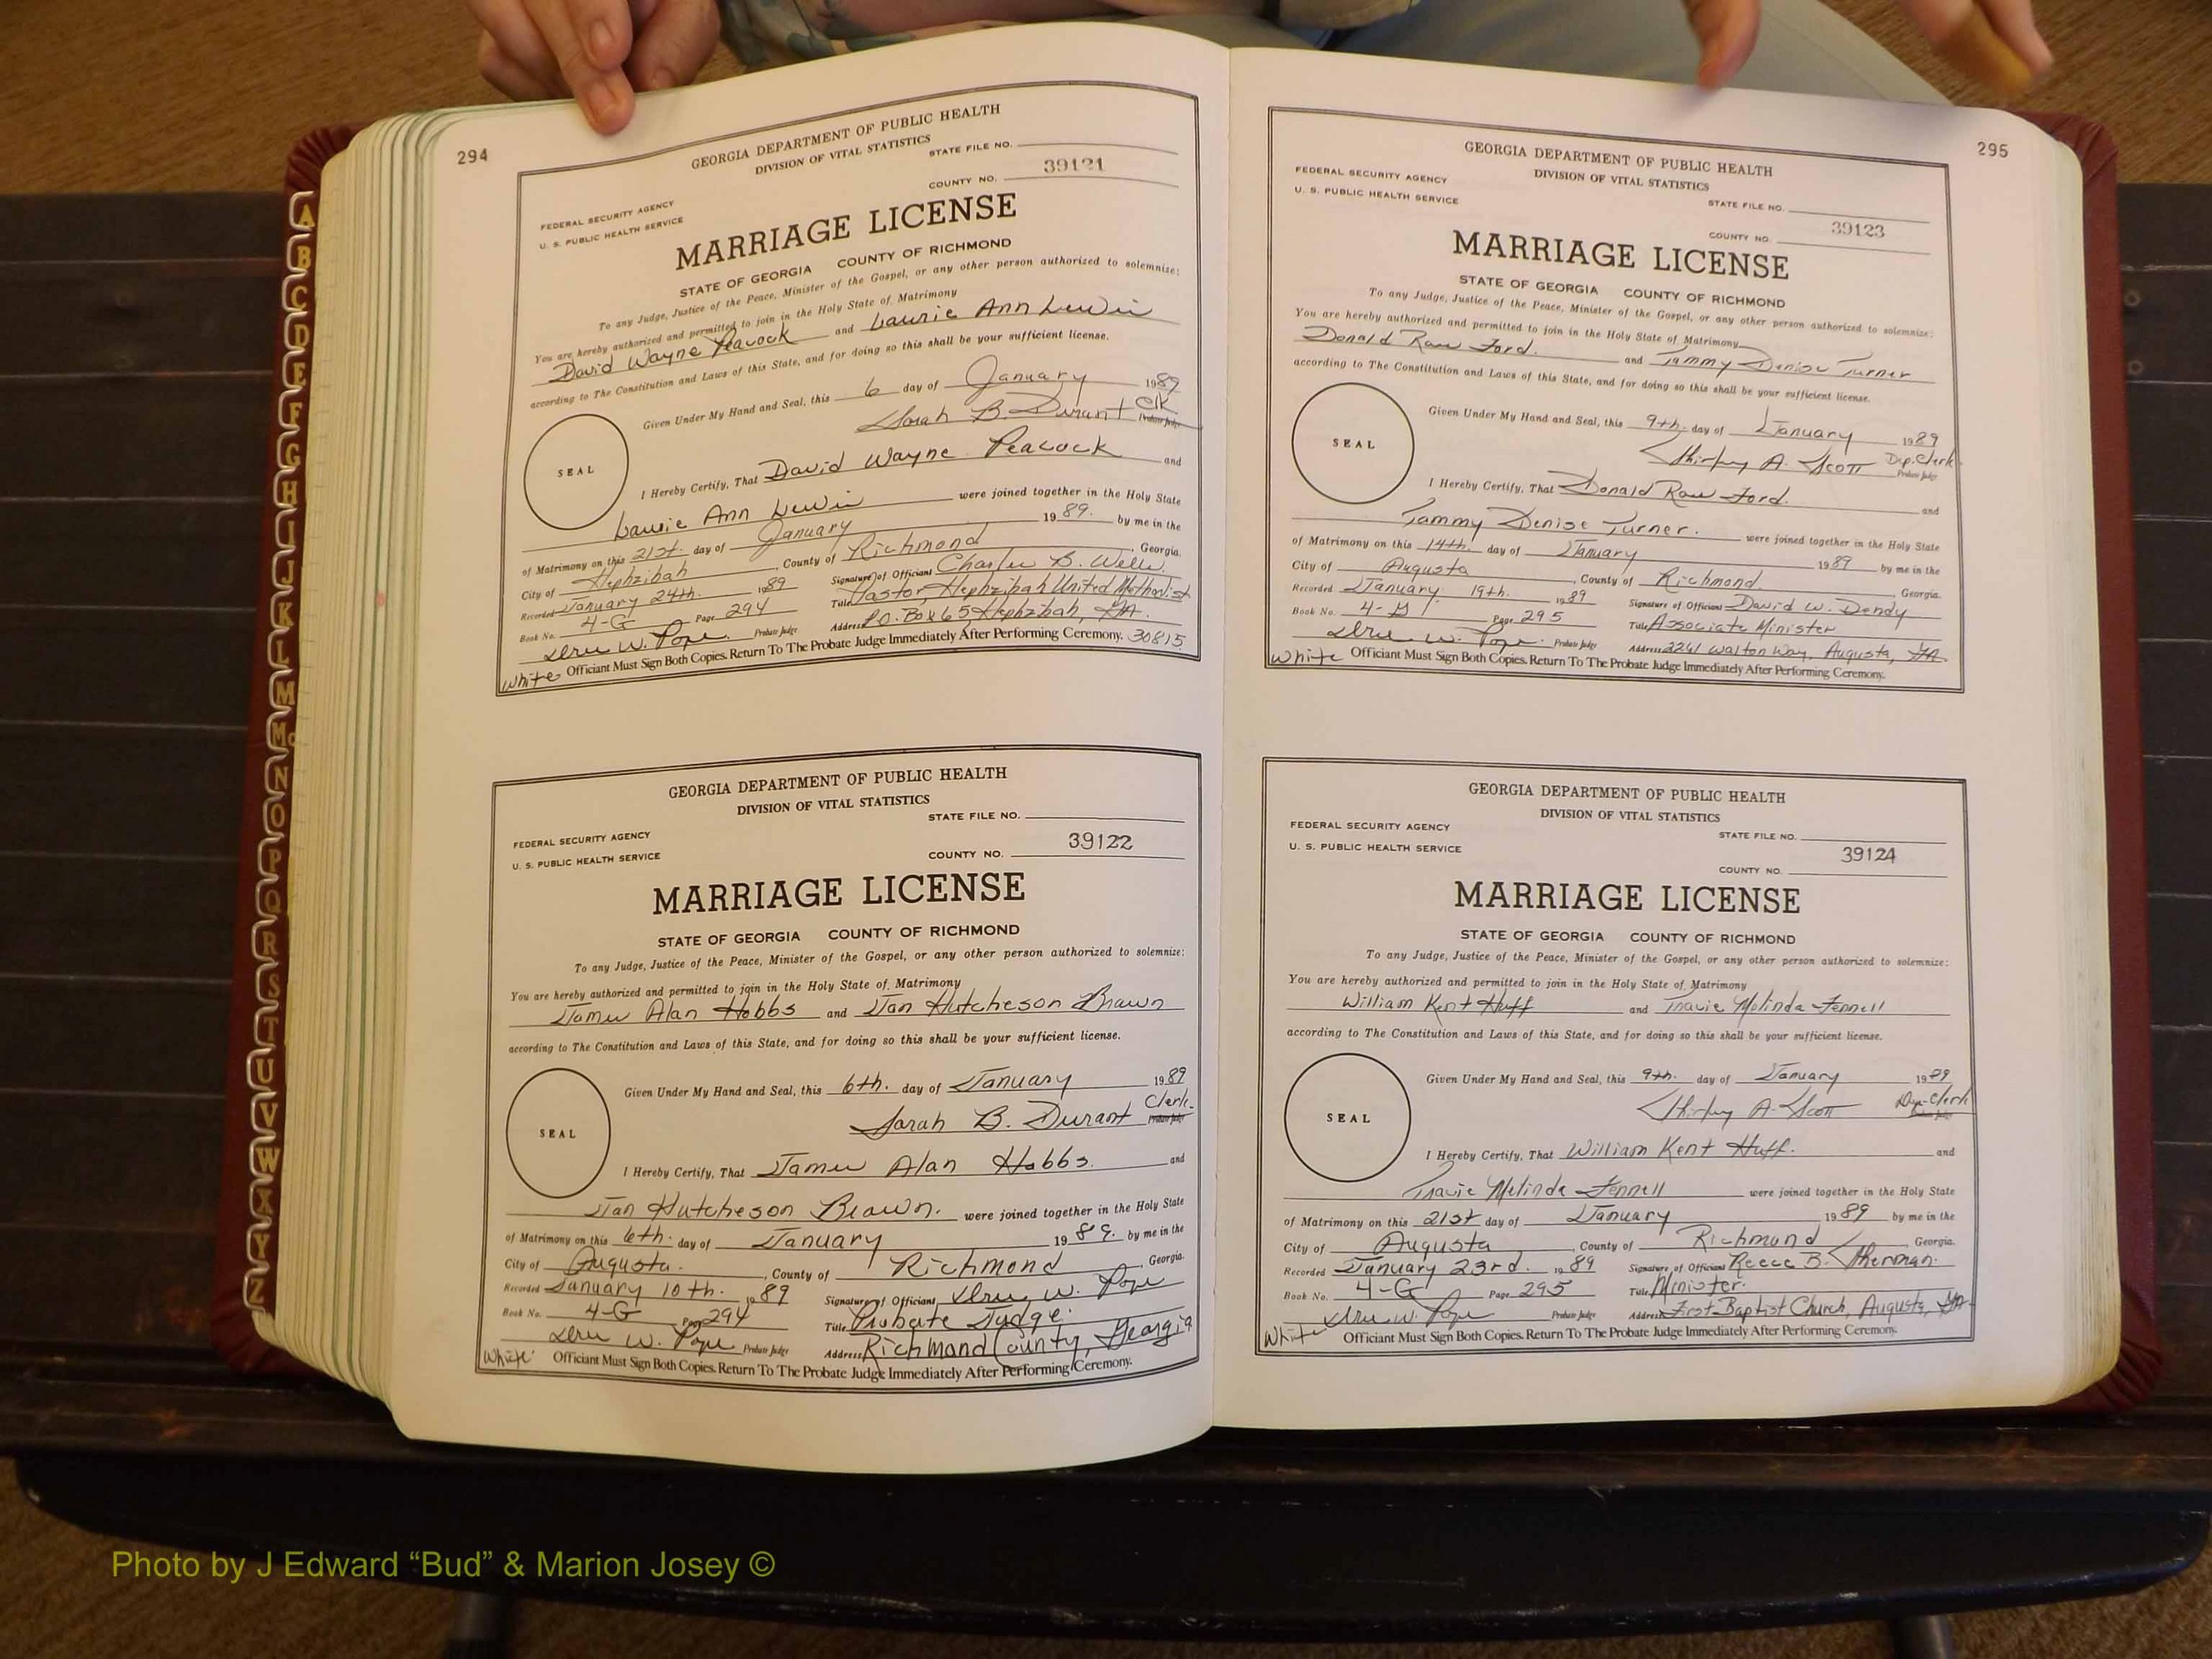 294
GEORGIA DEPARTMENT OF PUBLIC HEALTH
DIVISION OF VITAL STATISTICS
STATE FILE NO.
39121
COUNTY NO.
FEDERAL SECURITY AGENCY
U. S. PUBLIC HEALTH SERVICE
MARRIAGE LICENSE
STATE OF GEORGIA COUNTY OF RICHMOND
To any Judge, Justice of the Peace, Minister of the Gospel, or any other person authorized to solemnize:
You are hereby authorized and permitted to join in the Holy State of Matrimony
David Wayne Peacock and Laurie Ann Lewis
according to The Constitution and Laws of this State, and for doing so this shall be your sufficient license.
Given Under My Hand and Seal, this 6 day of January 1989
Sarah B. Durant Clk
Probate Judge
SEAL
I Hereby Certify, That David Wayne Peacock and
Laurie Ann Lewis were joined together in the Holy State
of Matrimony on this 21st. day of January 1989. by me in the
City of Hephzibah, County of Richmond, Georgia.
Recorded January 24th. 1989 Signature of Officiant Charles B. Wells.
Book No. 4-G Page 294 Title Pastor, Hephzibah United Methodist
W. Pope. Probate Judge Address P.O. Box 65 Hephzibah, GA. 30815
White Officiant Must Sign Both Copies. Return To The Probate Judge Immediately After Performing Ceremony.
GEORGIA DEPARTMENT OF PUBLIC HEALTH
DIVISION OF VITAL STATISTICS
STATE FILE NO.
39122
COUNTY NO.
FEDERAL SECURITY AGENCY
U. S. PUBLIC HEALTH SERVICE
MARRIAGE LICENSE
STATE OF GEORGIA COUNTY OF RICHMOND
To any Judge, Justice of the Peace, Minister of the Gospel, or any other person authorized to solemnize:
You are hereby authorized and permitted to join in the Holy State of Matrimony
James Alan Hobbs and Jan Hutcheson Brown
according to The Constitution and Laws of this State, and for doing so this shall be your sufficient license.
Given Under My Hand and Seal, this 6th. day of January 1989
Sarah B. Durant Clerk.
Probate Judge
SEAL
I Hereby Certify, That James Alan Hobbs. and
Jan Hutcheson Brown. were joined together in the Holy State
of Matrimony on this 6th. day of January 1989. by me in the
City of Augusta., County of Richmond, Georgia.
Recorded January 10th. 1989 Signature of Officiant W. Pope
Book No. 4-G Page 294 Title Probate Judge.
W. Pope Probate Judge Address Richmond County, Georgia
White Officiant Must Sign Both Copies. Return To The Probate Judge Immediately After Performing Ceremony.
295
GEORGIA DEPARTMENT OF PUBLIC HEALTH
DIVISION OF VITAL STATISTICS
FEDERAL SECURITY AGENCY
U. S. PUBLIC HEALTH SERVICE
STATE FILE NO.
39123
COUNTY NO.
MARRIAGE LICENSE
STATE OF GEORGIA COUNTY OF RICHMOND
To any Judge, Justice of the Peace, Minister of the Gospel, or any other person authorized to solemnize:
You are hereby authorized and permitted to join in the Holy State of Matrimony
Donald Ford. and Tammy Denise Turner
according to The Constitution and Laws of this State, and for doing so this shall be your sufficient license.
Given Under My Hand and Seal, this 9th. day of January 1989
Shirley A. Scott Dep. Clerk
Probate Judge
SEAL
I Hereby Certify, That Donald Ford. and
Tammy Denise Turner. were joined together in the Holy State
of Matrimony on this 14th. day of January 1989 by me in the
City of Augusta, County of Richmond. Georgia.
Recorded January 19th. 1989 Signature of Officiant David W. Dendy
Book No. Page 295 Title Associate Minister
W. Pope. Probate Judge Address 2261 Walton Way, Augusta, GA.
White Officiant Must Sign Both Copies. Return To The Probate Judge Immediately After Performing Ceremony.
GEORGIA DEPARTMENT OF PUBLIC HEALTH
DIVISION OF VITAL STATISTICS
FEDERAL SECURITY AGENCY
U. S. PUBLIC HEALTH SERVICE
STATE FILE NO.
39124
COUNTY NO.
MARRIAGE LICENSE
STATE OF GEORGIA COUNTY OF RICHMOND
To any Judge, Justice of the Peace, Minister of the Gospel, or any other person authorized to solemnize:
You are hereby authorized and permitted to join in the Holy State of Matrimony
William Kent Huff and Melinda Fennell
according to The Constitution and Laws of this State, and for doing so this shall be your sufficient license.
Given Under My Hand and Seal, this 9th. day of January 1989
Shirley A. Scott Dep-Clerk
Probate Judge
SEAL
I Hereby Certify, That William Kent Huff. and
Melinda Fennell were joined together in the Holy State
of Matrimony on this 21st day of January 1989 by me in the
City of Augusta, County of Richmond, Georgia.
Recorded January 23rd. 1989 Signature of Officiant Reece B. Sherman.
Book No. 4-G Page 295 Title Minister.
W. Pope Probate Judge Address First Baptist Church, Augusta, GA.
White Officiant Must Sign Both Copies. Return To The Probate Judge Immediately After Performing Ceremony.
A
B
C
D
E
F
G
H
I
J
K
L
M
Mc
N
O
P
Q
R
S
T
U
V
W
X
Y
Z
Photo by J Edward “Bud” & Marion Josey ©